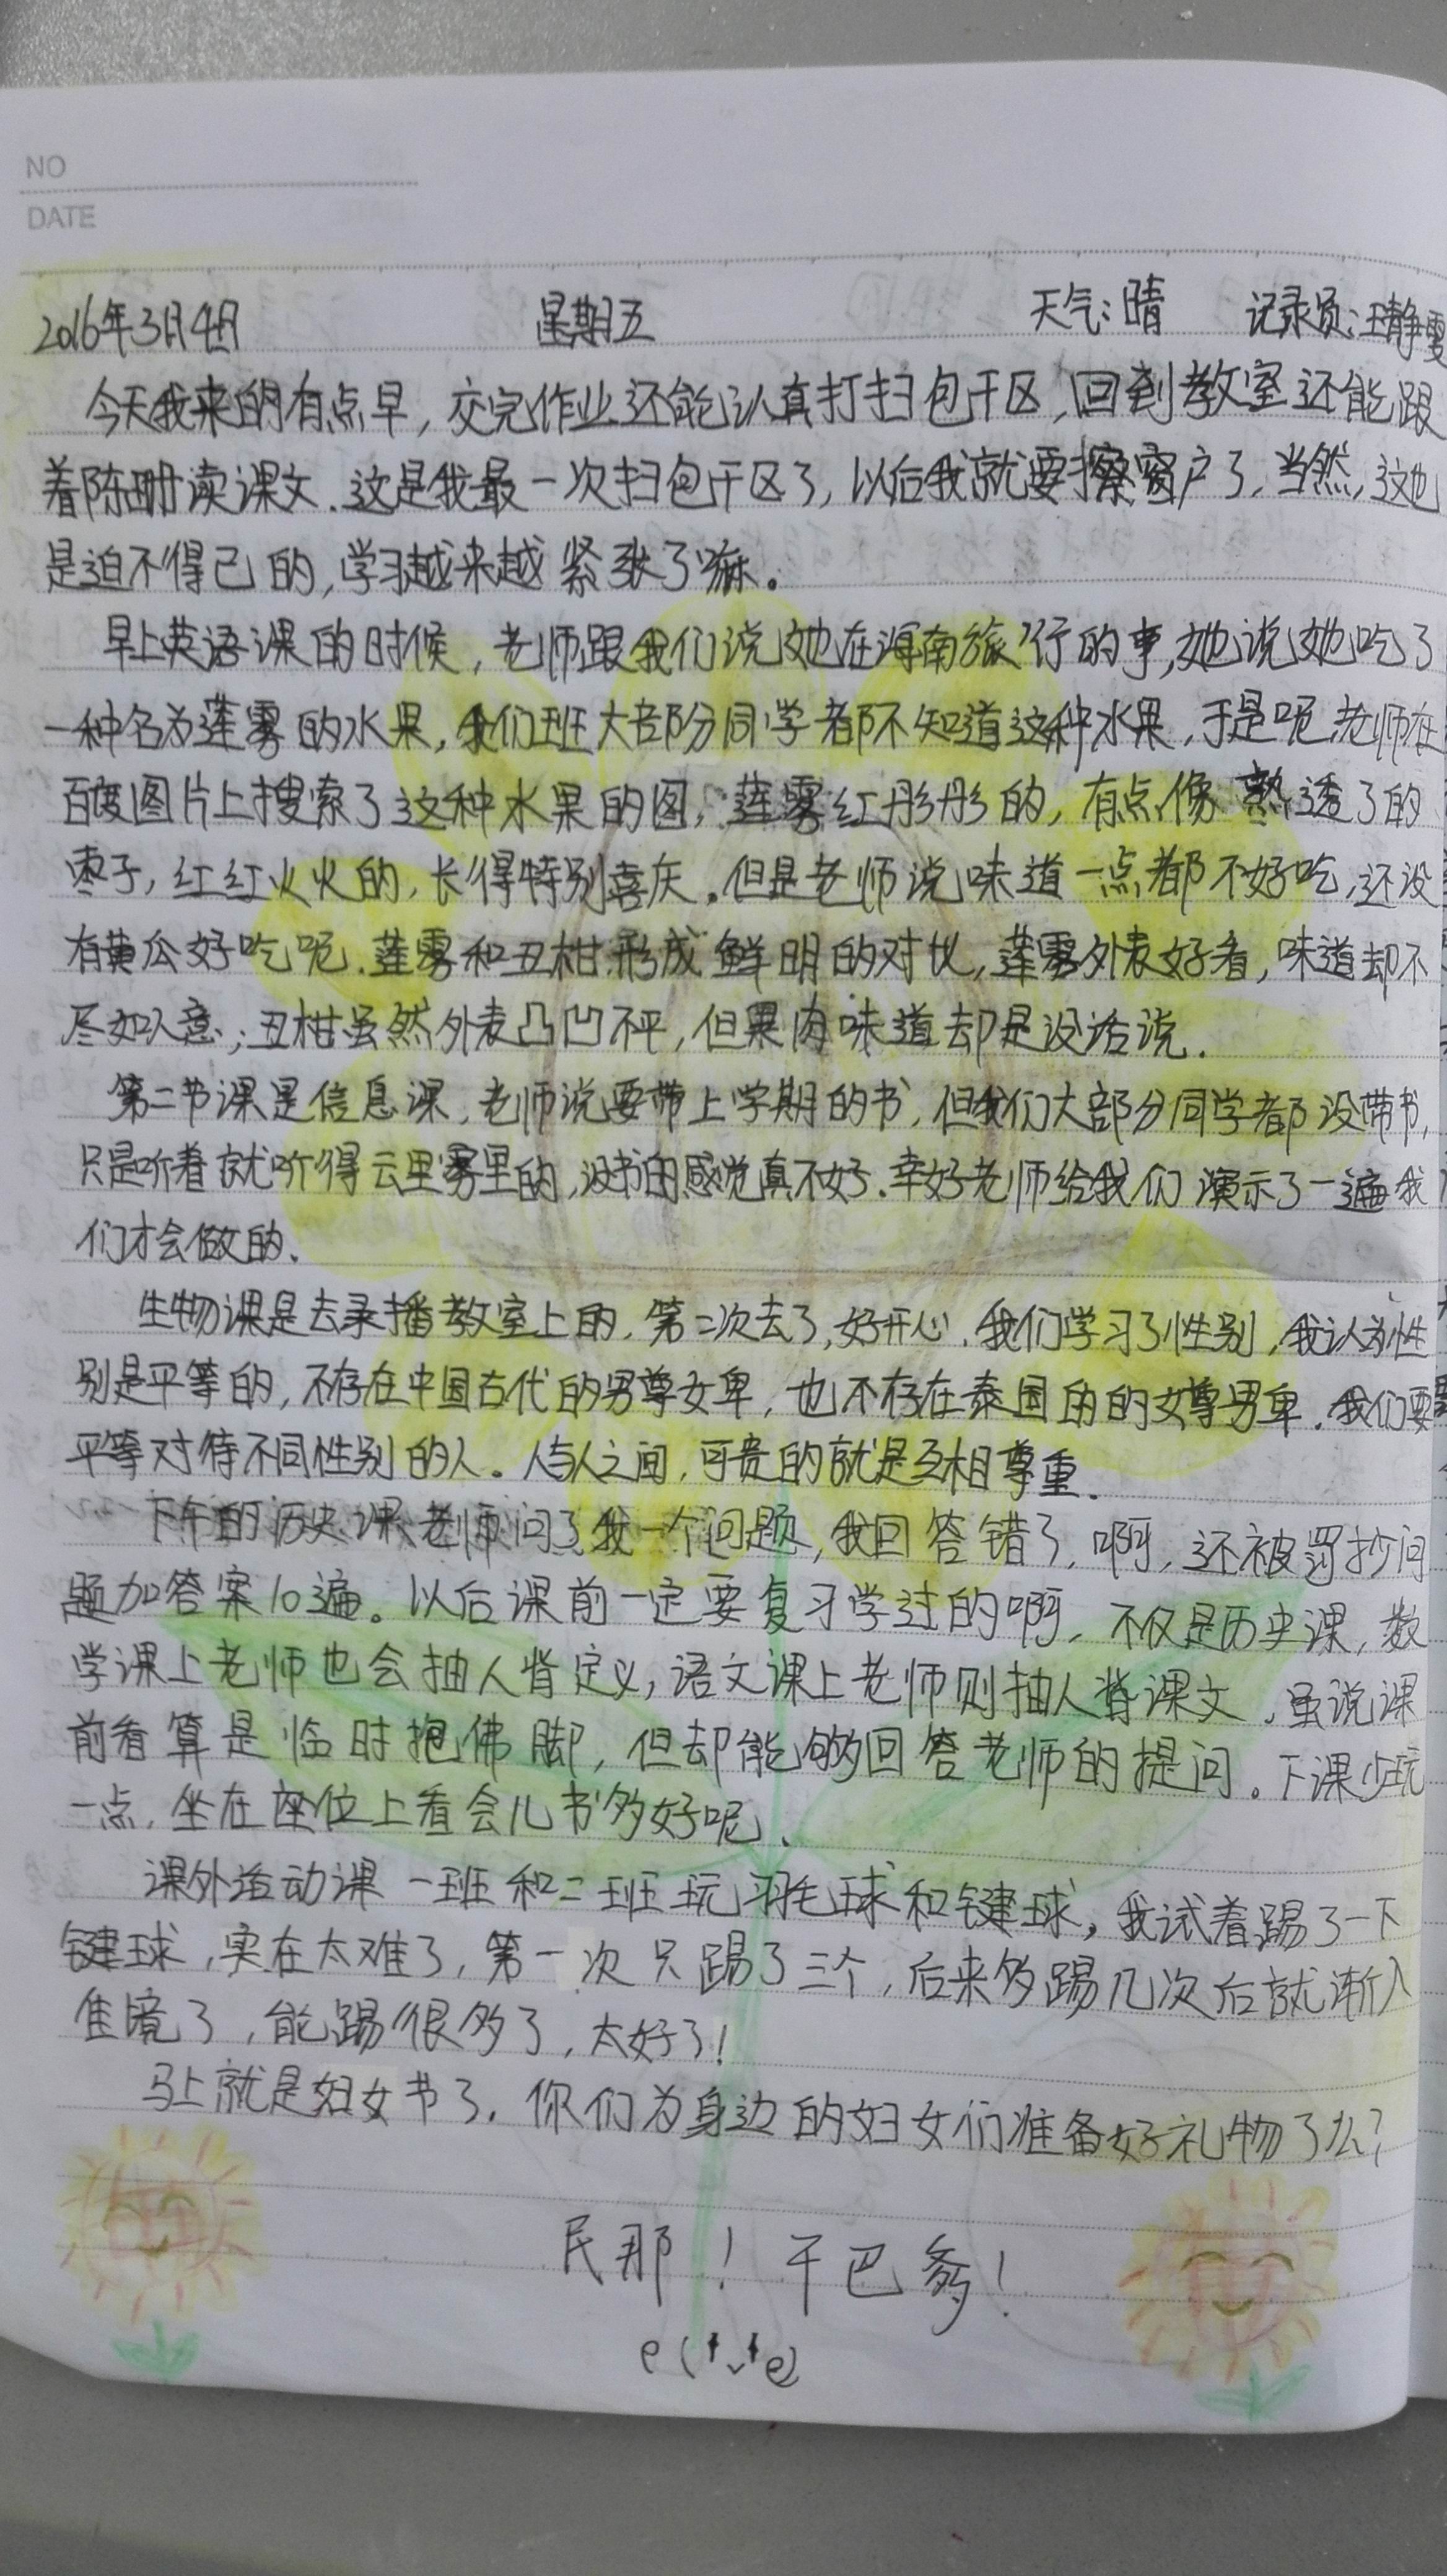 NO
DATE
2016年3月4日 星期五 天气:晴 记录员:汪静雯
今天我来的有点早,交完作业还能认真打扫包干区,回到教室还能跟
着陈珊读课文.这是我最一次扫包干区了,以后我就要擦窗户了.当然,这也
是迫不得已的,学习越来越紧张了嘛。
早上英语课的时候,老师跟我们说她在海南旅行的事,她说她吃了
一种名为莲雾的水果,我们班大部分同学都不知道这种水果,于是呢,老师在
百度图片上搜索了这种水果的图,莲雾红彤彤的,有点像熟透了的
枣子,红红火火的,长得特别喜庆.但是老师说味道一点都不好吃,还没
有黄瓜好吃呢.莲雾和丑柑形成鲜明的对比,莲雾外表好看,味道却不
尽如人意;丑柑虽然外表凸凹不平,但果肉味道却是没话说.
第二节课是信息课,老师说要带上学期的书,但我们大部分同学都没带书,
只是听着就听得云里雾里的,没书的感觉真不好.幸好老师给我们演示了一遍我
们才会做的.
生物课是去录播教室上的,第二次去了,好开心.我们学习了性别,我认为性
别是平等的,不存在中国古代的男尊女卑,也不存在泰国的的女尊男卑.我们要
平等对待不同性别的人。人与人之间,可贵的就是互相尊重.
下午的历史课,老师问了我一个问题,我回答错了,啊,还被罚抄问
题加答案10遍。以后课前一定要复习学过的啊,不仅是历史课,数
学课上老师也会抽人背定义,语文课上老师则抽人背课文,虽说课
前看算是临时抱佛脚,但却能够回答老师的提问。下课少玩
一点,坐在座位上看会儿书多好呢.
课外活动课一班和二班玩羽毛球和键球,我试着踢了一下
键球,实在太难了,第一次只踢了三个,后来多踢几次后就渐入
佳境了,能踢很多了,太好了!
马上就是妇女节了,你们为身边的妇女们准备好礼物了么?
民那!干巴爹!